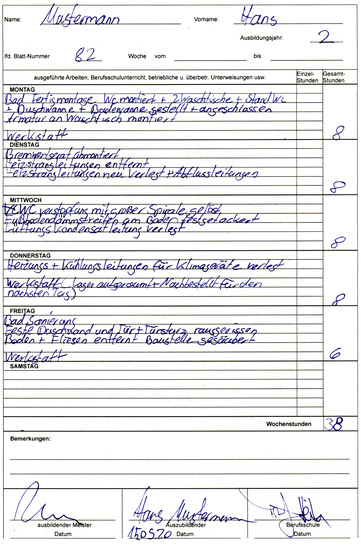 Name: Mustermann Vorname: Hans
Ausbildungsjahr: 2
lfd. Blatt-Nummer 82 Woche vom bis
ausgeführte Arbeiten, Berufsschulunterricht, betriebliche u. überbetr. Unterweisungen usw. Einzel-Stunden Ges.-Stunden
MONTAG
Bad Fertigmontage. Wc montiert + 2 Waschtische + Stand Wc
+ Duschwanne + Badewanne gestellt + angeschlossen
Armatur an Waschtisch montiert
Werkstatt 8
DIENSTAG
Brennwertgerät abmontiert
Heizstrangleitungen entfernt
Heizstrangleitungen neu verlegt + Abflussleitungen
8
MITTWOCH
WC verstopfung mit großer Spirale gelöst
Fußbodendämmstreifen am Boden festgetackert
Lüftungs Kondensatleitung verlegt
8
DONNERSTAG
Heizungs + Kühlungsleitungen für Klimageräte verlegt
Werkstatt (Lager aufgeräumt + Nachbestellt für den
nächsten Tag)
8
FREITAG
Bad Sanierung
Feste Duschwand und Tür + Türsturz rausgerissen
Boden + Fliesen entfernt Baustelle gesäubert
Werkstatt 6
SAMSTAG
Wochenstunden 38
Bemerkungen:
Hans Mustermann
ausbildender Meister Auszubildender Berufsschule
Datum 15.05.20 Datum Datum